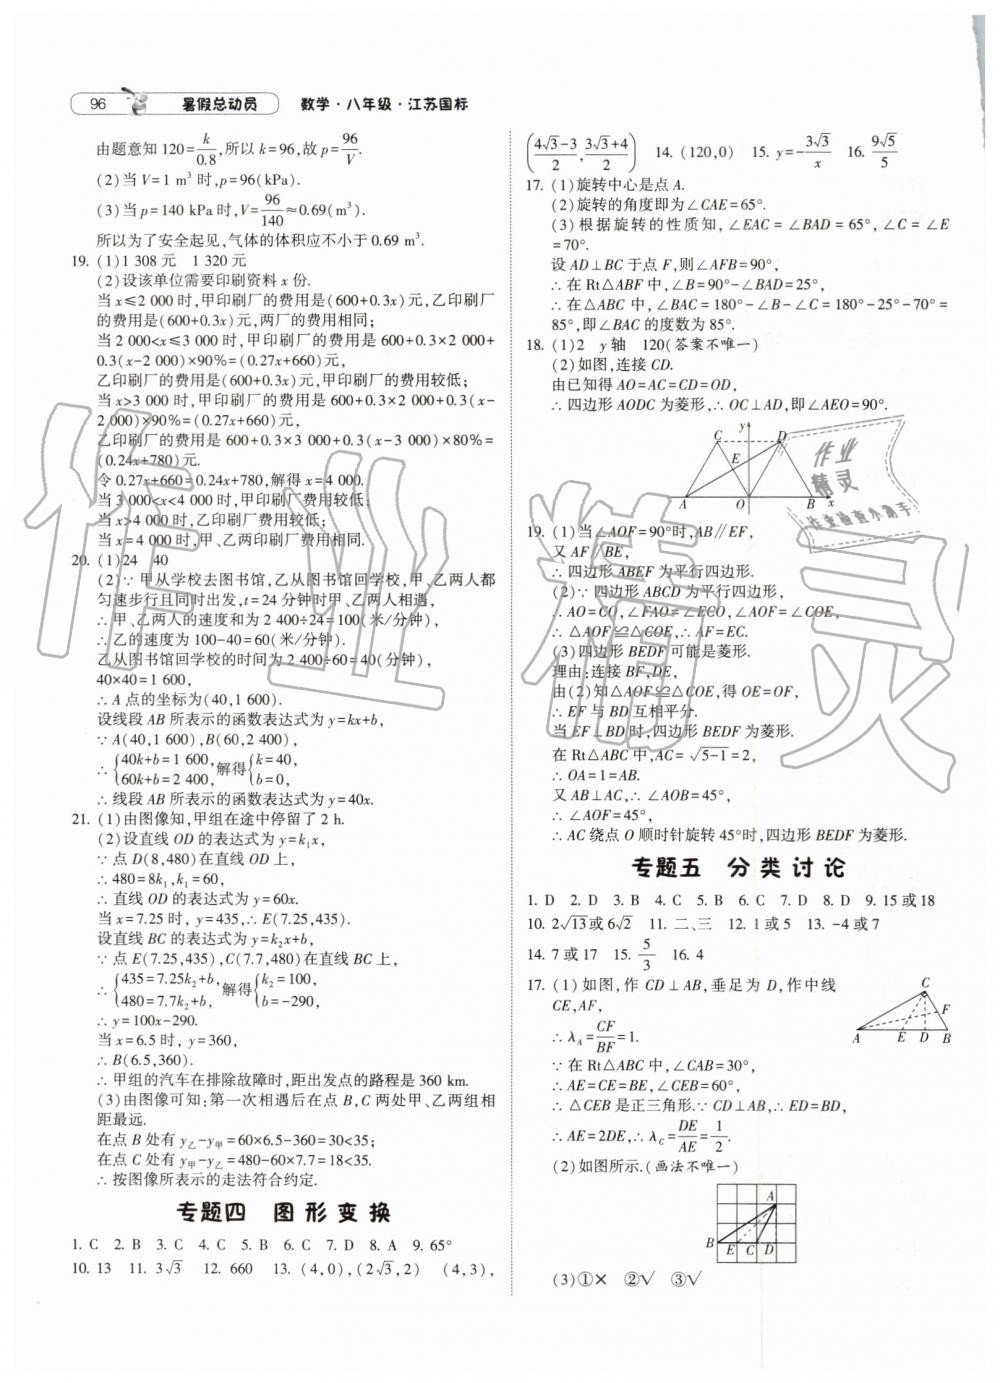 96 暑假总动员 数学·八年级·江苏国标
由题意知 120=k/0.8,所以 k=96,故 p=96/V.
(2)当 V=1 m³ 时,p=96(kPa).
(3)当 p=140 kPa 时,V=96/140≈0.69(m³).
所以为了安全起见,气体的体积应不小于 0.69 m³.
19. (1)1 308 元 1 320 元
(2)设该单位需要印刷资料 x 份.
当 x≤2 000 时,甲印刷厂的费用是(600+0.3x)元,乙印刷厂
的费用是(600+0.3x)元,两厂的费用相同;
当 2 000<x≤3 000 时,甲印刷厂的费用是 600+0.3×2 000+
0.3(x-2 000)×90%=(0.27x+660)元,
乙印刷厂的费用是(600+0.3x)元,甲印刷厂的费用较低;
当 x>3 000 时,甲印刷厂的费用是 600+0.3×2 000+0.3(x-
2 000)×90%=(0.27x+660)元,
乙印刷厂的费用是 600+0.3×3 000+0.3(x-3 000)×80%=
(0.24x+780)元.
令 0.27x+660=0.24x+780,解得 x=4 000.
当 3 000<x<4 000 时,甲印刷厂费用较低;
当 x>4 000 时,乙印刷厂费用较低;
当 x=4 000 时,甲、乙两印刷厂费用相同.
20. (1)24 40
(2)∵ 甲从学校去图书馆,乙从图书馆回学校,甲、乙两人都
匀速步行且同时出发,t=24 分钟时甲、乙两人相遇,
∴ 甲、乙两人的速度和为 2 400÷24=100(米/分钟),
∴ 乙的速度为 100-40=60(米/分钟).
乙从图书馆回学校的时间为 2 400÷60=40(分钟),
40×40=1 600,
∴ A 点的坐标为(40,1 600).
设线段 AB 所表示的函数表达式为 y=kx+b,
∵ A(40,1 600),B(60,2 400),
∴ {40k+b=1 600, 60k+b=2 400, 解得{k=40, b=0,
∴ 线段 AB 所表示的函数表达式为 y=40x.
21. (1)由图像知,甲组在途中停留了 2 h.
(2)设直线 OD 的表达式为 y=k₁x,
∵ 点 D(8,480)在直线 OD 上,
∴ 480=8k₁,k₁=60,
∴ 直线 OD 的表达式为 y=60x.
当 x=7.25 时, y=435,∴ E(7.25,435).
设直线 BC 的表达式为 y=k₂x+b,
∵ 点 E(7.25,435),C(7.7,480)在直线 BC 上,
∴ {435=7.25k₂+b, 480=7.7k₂+b, 解得{k₂=100, b=-290,
∴ y=100x-290.
当 x=6.5 时, y=360,
∴ B(6.5,360).
∴ 甲组的汽车在排除故障时,距出发点的路程是 360 km.
(3)由图像可知:第一次相遇后在点 B,C 两处甲、乙两组相
距最远.
在点 B 处有 y乙-y甲=60×6.5-360=30<35;
在点 C 处有 y甲-y乙=480-60×7.7=18<35.
∴ 按图像所表示的走法符合约定.
专题四 图形变换
1. C 2. B 3. C 4. C 5. B 6. C 7. D 8. A 9. 65°
10. 13 11. 3√3 12. 660 13. (4,0),(2√3,2) (4,3),
((4√3-3)/2,(3√3+4)/2) 14. (120,0) 15. y=-3√3/x 16. 9√5/5
17. (1)旋转中心是点 A.
(2)旋转的角度即为∠CAE=65°.
(3)根据旋转的性质知,∠EAC=∠BAD=65°,∠C=∠E
=70°.
设 AD⊥BC 于点 F,则∠AFB=90°,
∴ 在 Rt△ABF 中,∠B=90°-∠BAD=25°,
∴ 在△ABC 中,∠BAC=180°-∠B-∠C=180°-25°-70°=
85°,即∠BAC 的度数为 85°.
18. (1)2 y 轴 120(答案不唯一)
(2)如图,连接 CD.
由已知得 AO=AC=CD=OD,
∴ 四边形 AODC 为菱形,∴ OC⊥AD,即∠AEO=90°.
y
C D
E
A O B x
19. (1)当∠AOF=90°时,AB∥EF,
又 AF∥BE,
∴ 四边形 ABEF 为平行四边形.
(2)∵ 四边形 ABCD 为平行四边形,
∴ AO=CO,∠FAO=∠ECO,∠AOF=∠COE,
∴ △AOF≌△COE,∴ AF=EC.
(3)四边形 BEDF 可能是菱形.
理由:连接 BF,DE,
由(2)知△AOF≌△COE,得 OE=OF,
∴ EF 与 BD 互相平分.
当 EF⊥BD 时,四边形 BEDF 为菱形.
在 Rt△ABC 中,AC=√5-1=2,
∴ OA=1=AB.
又 AB⊥AC,∴ ∠AOB=45°,
∴ ∠AOF=45°,
∴ AC 绕点 O 顺时针旋转 45°时,四边形 BEDF 为菱形.
专题五 分类讨论
1. D 2. D 3. B 4. C 5. B 6. C 7. D 8. D 9. 15 或 18
10. 2√13或 6√2 11. 二、三 12. 1 或 5 13. -4 或 7
14. 7 或 17 15. 5/3 16. 4
17. (1)如图,作 CD⊥AB,垂足为 D,作中线
CE,AF,
∴ λA=CF/BF=1.
∵ 在 Rt△ABC 中,∠CAB=30°,
∴ AE=CE=BE,∠CEB=60°,
∴ △CEB 是正三角形.∵ CD⊥AB,∴ ED=BD,
∴ AE=2DE,∴ λC=DE/AE=1/2.
C
F
A E D B
(2)如图所示.(画法不唯一)
A
B E C D
(3)①× ②√ ③√
作业精灵
作业
精灵
作业检查小高手